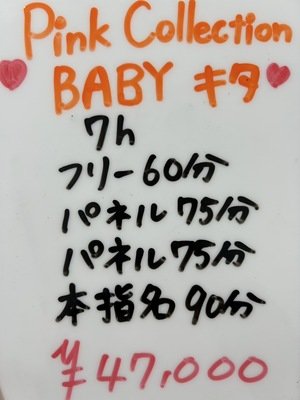 Pink Collection
BABY キタ
7h
フリー60分
パネル75分
パネル75分
本指名90分
¥47,000